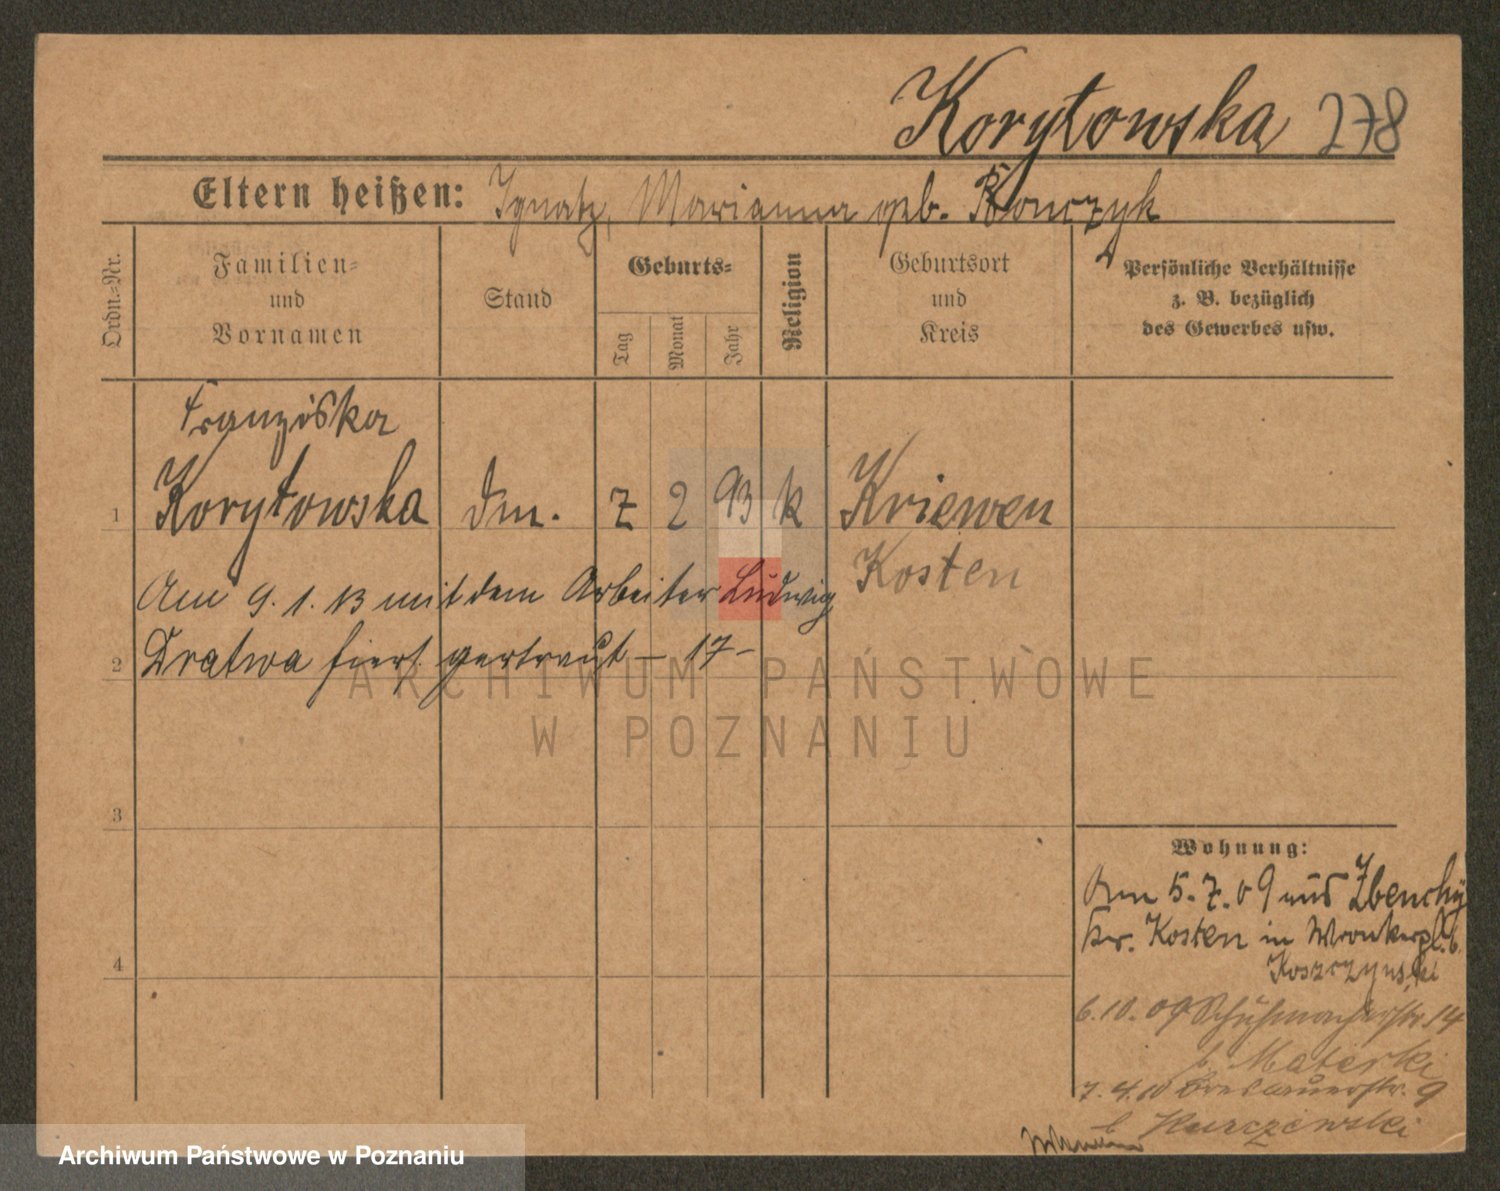 Korytowska 278
Eltern heißen: Ignatz, Marianna geb. Konczyk
Ordn.-Nr.
Familien-
und
Vornamen
Stand
Geburts-
Tag
Monat
Jahr
Religion
Geburtsort
und
Kreis
Persönliche Verhältnisse
z. B. bezüglich
des Gewerbes usw.
Franziska
1 Korytowska dm. 7 2 93 k Kriewen
Kosten
Am 9. 1. 13 mit dem Arbeiter Ludwig
2 Dratwa hiers. getraut – 17 –
ARCHIWUM PAŃSTWOWE
W POZNANIU
3
4
Wohnung:
Am 5. 7. 09 aus Zbenchy
Kr. Kosten in Wronkerpl. 6.
Koszczynski
6. 10. 09 Schuhmacherstr. 14
b. Materski
7. 4. 10 Breslauerstr. 9
b. Kurczewski
Archiwum Państwowe w Poznaniu